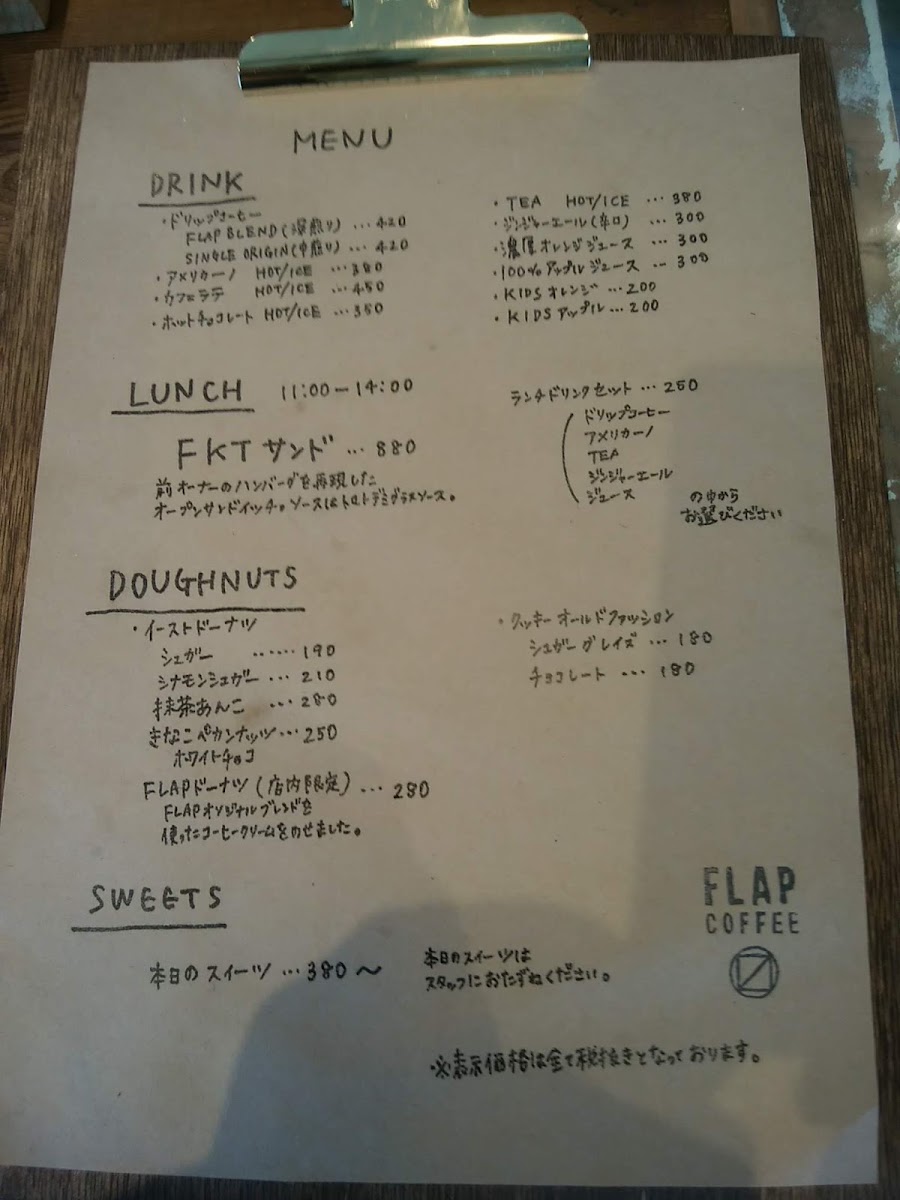 MENU
DRINK
・ドリップコーヒー
FLAP BLEND(深煎り) …420
SINGLE ORIGIN(中煎り) …420
・アメリカーノ HOT/ICE …380
・カフェラテ HOT/ICE …450
・ホットチョコレート HOT/ICE …350
・TEA HOT/ICE …380
・ジンジャーエール(辛口) …300
・濃厚オレンジジュース …300
・100%アップルジュース …300
・KIDSオレンジ …200
・KIDSアップル …200
LUNCH 11:00−14:00
FKTサンド …880
前オーナーのハンバーグを再現した
オープンサンドイッチ。ソースはトロトロデミグラスソース。
ランチドリンクセット …250
ドリップコーヒー
アメリカーノ
TEA
ジンジャーエール
ジュース
の中から
お選びください
DOUGHNUTS
・イーストドーナツ
シュガー ……190
シナモンシュガー …210
抹茶あんこ …280
きなこペカンナッツ…250
ホワイトチョコ
FLAPドーナツ(店内限定) …280
FLAPオリジナルブレンドを
使ったコーヒークリームをのせました。
・クッキーオールドファッション
シュガーグレイズ …180
チョコレート …180
SWEETS
本日のスイーツ …380〜
本日のスイーツは
スタッフにおたずねください。
FLAP
COFFEE
※表示価格は全て税抜きとなっております。